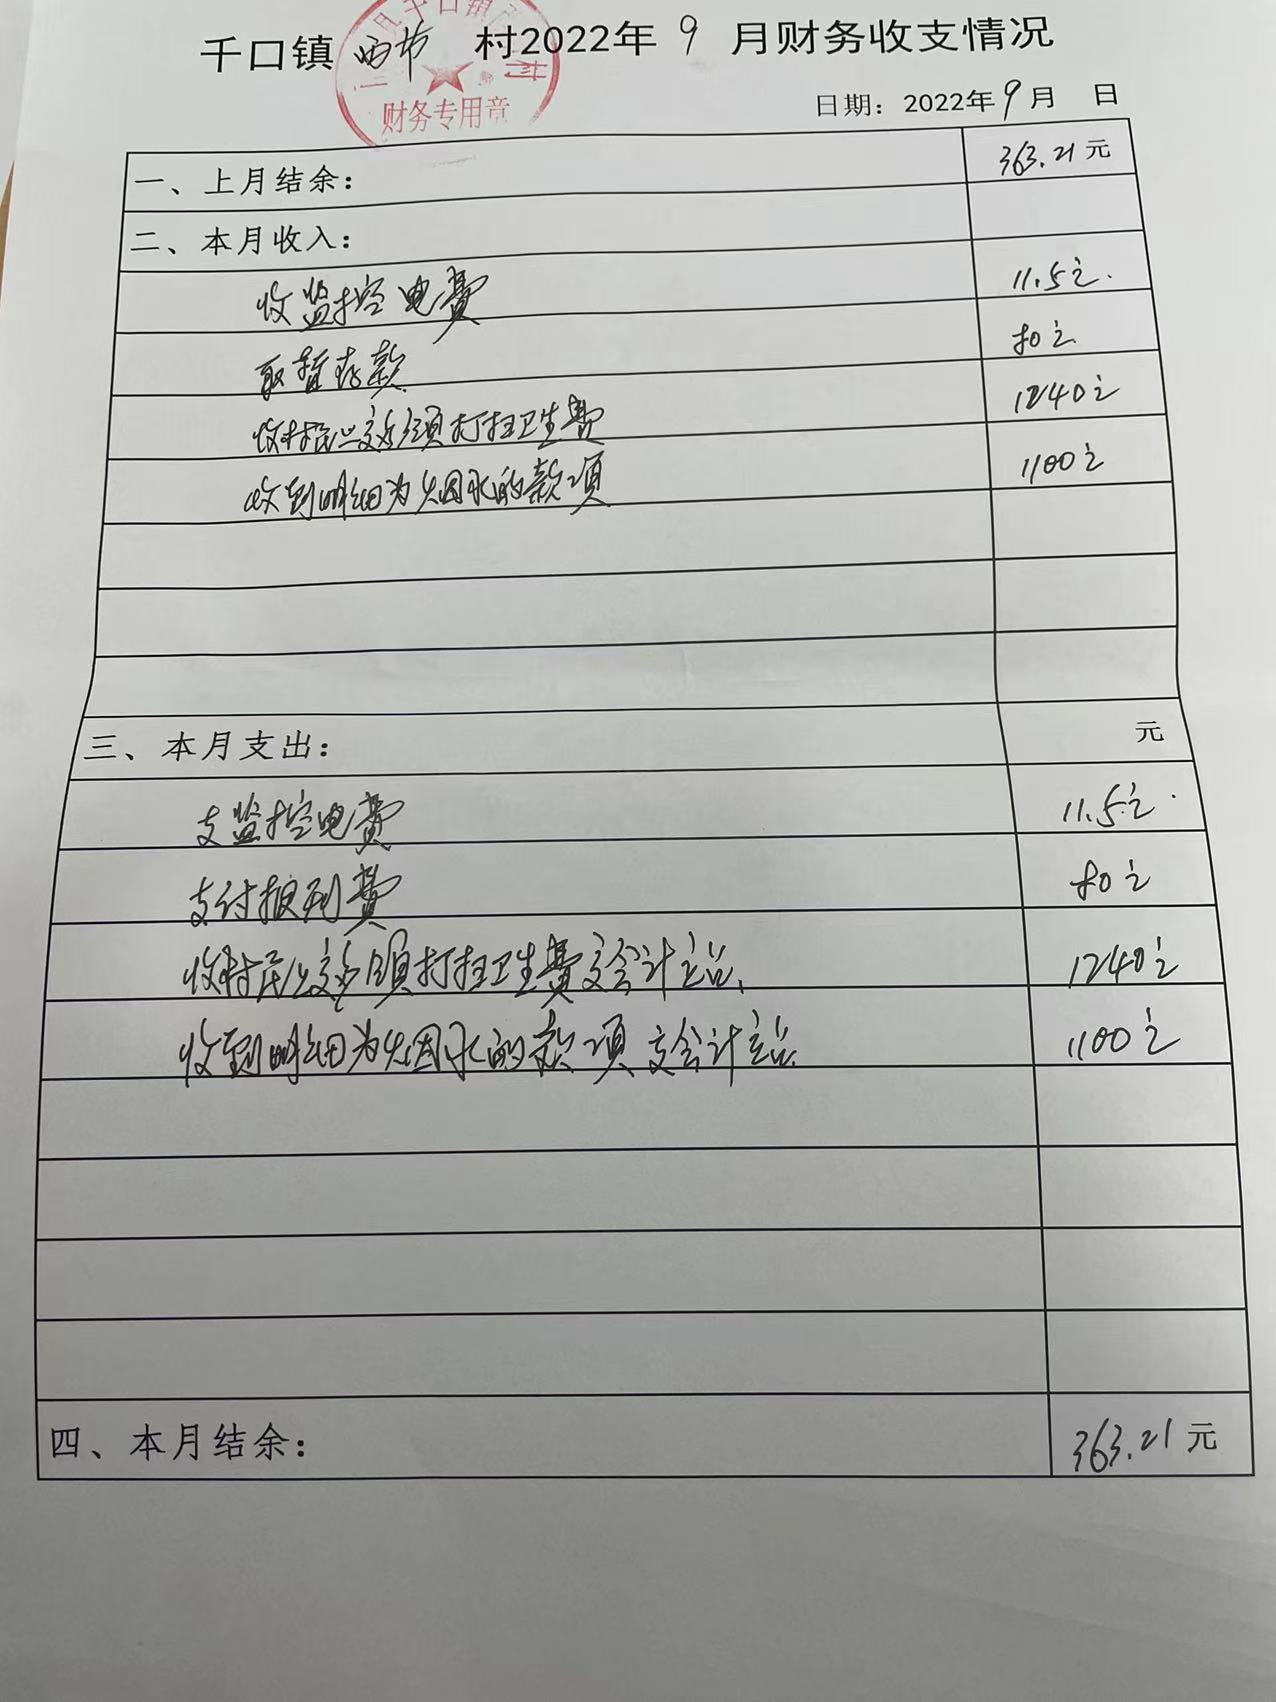 千口镇 西节 村2022年 9 月财务收支情况
财务专用章
日期：2022年9月 日
一、上月结余： 363.21元
二、本月收入：
收监控电费 11.5元.
取暂存款 80元
收村民上交 打扫卫生费 1240元
收到明细为 的款项 1100元
三、本月支出： 元
支监控电费 11.5元
支付报刊费 80元
收村民上交 打扫卫生费交会计主站 1240元
收到明细为 的款项交会计主站 1100元
四、本月结余： 363.21元